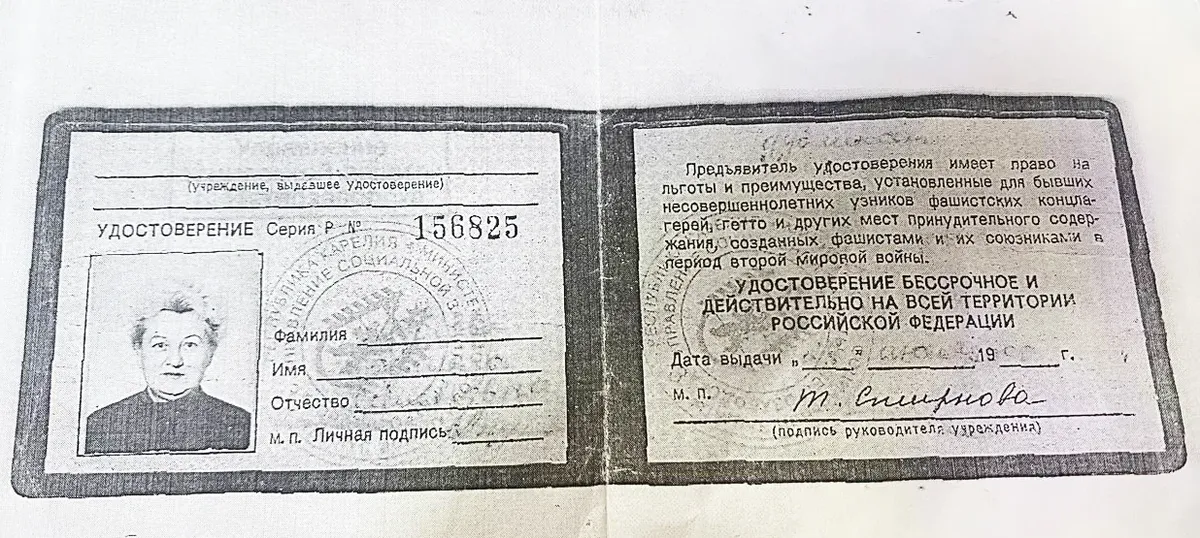 (учреждение, выдавшее удостоверение)
УДОСТОВЕРЕНИЕ Серия Р № 156825
РЕСПУБЛИКА КАРЕЛИЯ МИНИСТЕ
СОЦИАЛЬНОЙ З
Фамилия
Имя
Отчество
м. п. Личная подпись
Предъявитель удостоверения имеет право на
льготы и преимущества, установленные для бывших
несовершеннолетних узников фашистских концла-
герей, гетто и других мест принудительного содер-
жания, созданных фашистами и их союзниками в
период второй мировой войны.
УДОСТОВЕРЕНИЕ БЕССРОЧНОЕ И
ДЕЙСТВИТЕЛЬНО НА ВСЕЙ ТЕРРИТОРИИ
РОССИЙСКОЙ ФЕДЕРАЦИИ
Дата выдачи „ " 19 г.
м. п. Т. Смирнова
(подпись руководителя учреждения)